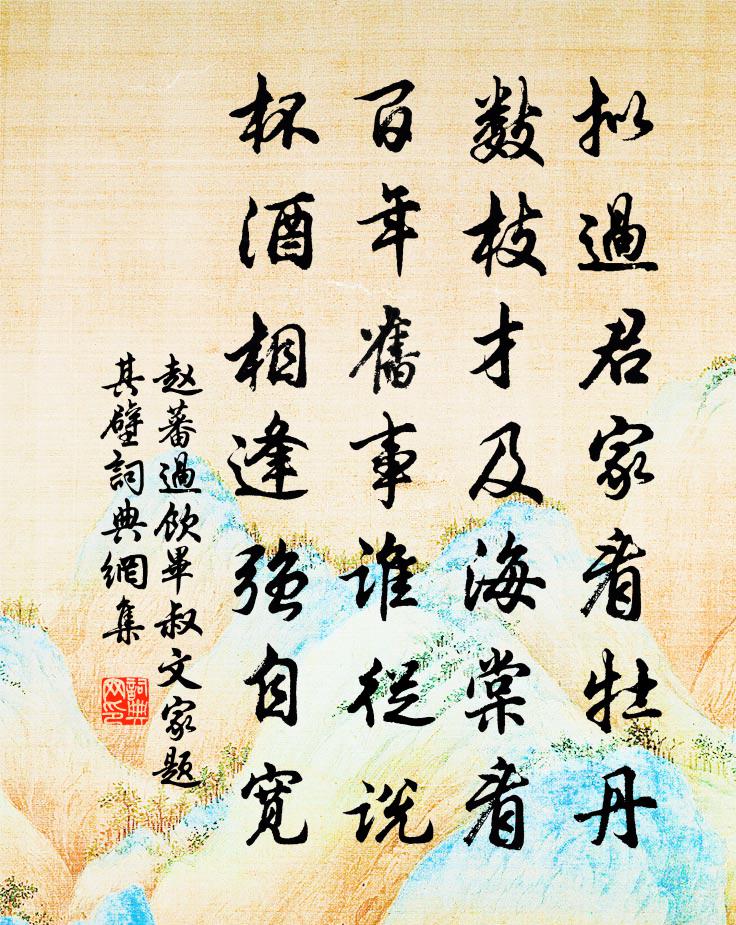 拟過君家看牡丹
数枝才及海棠看
百年舊事谁從説
杯酒相逢强自寬
赵蕃過飲畢叔文家題
其壁詞典網集
詞典网印